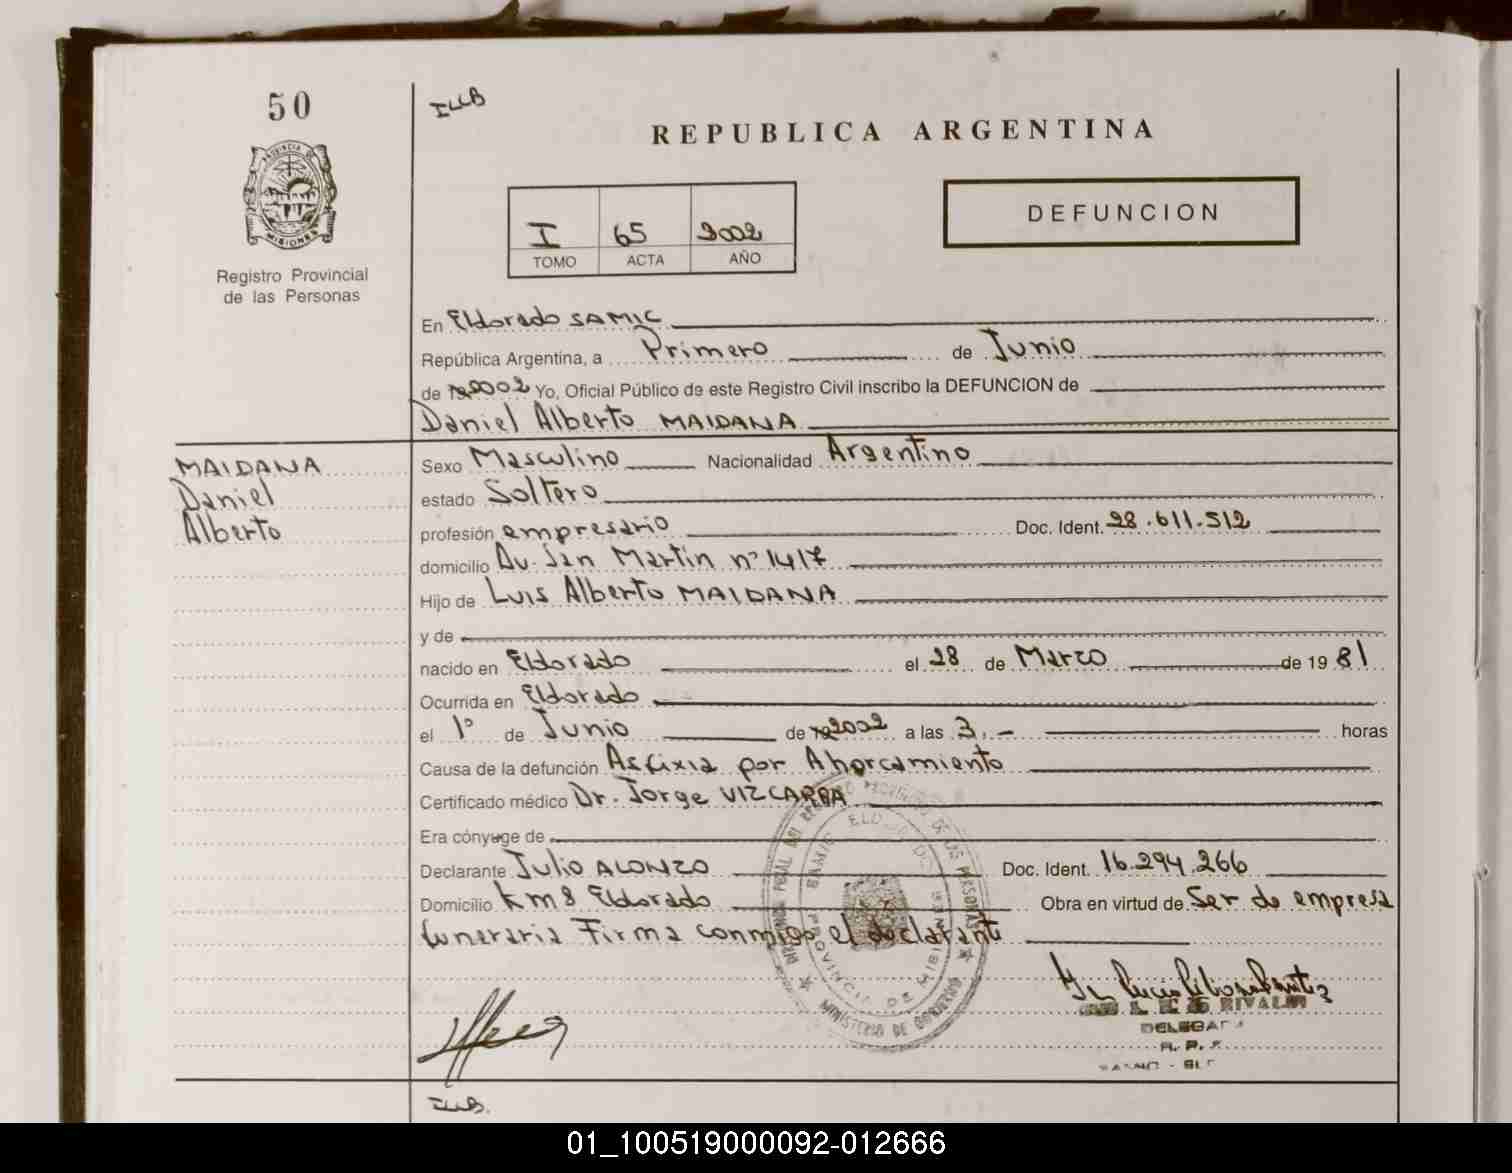 50
ILLB
REPUBLICA ARGENTINA
PROVINCIA DE
MISIONES
Registro Provincial
de las Personas
I 65 2002
TOMO ACTA AÑO
DEFUNCION
En Eldorado SAMIC
República Argentina, a Primero de Junio
de 2002 Yo, Oficial Público de este Registro Civil inscribo la DEFUNCION de
Daniel Alberto MAIDANA
MAIDANA
Daniel
Alberto
Sexo Masculino Nacionalidad Argentino
estado Soltero
profesión empresario Doc. Ident. 28.611.512
domicilio Av. San Martin nº 1417
Hijo de Luis Alberto MAIDANA
y de
nacido en Eldorado el 28 de Marzo de 1981
Ocurrida en Eldorado
el 1º de Junio de 2002 a las 3.- horas
Causa de la defunción Asfixia por Ahorcamiento
Certificado médico Dr. Jorge VIZCARRA
Era cónyuge de
Declarante Julio ALONZO Doc. Ident. 16.294.266
Domicilio Km 8 Eldorado Obra en virtud de Ser de empresa
funeraria Firma conmigo el declarante
PROVINCIAL DE LAS PERSONAS
SAMIC ELDORADO
PROVINCIA DE MISIONES
MINISTERIO DE GOBIERNO
RIVALDI
DELEGADA
R. P.
01_100519000092-012666